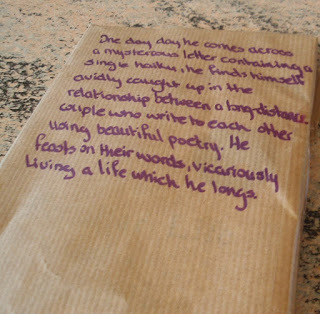 One day day he comes across
a mysterous letter containing a
single haiku, he finds himself
avidly caught up in the
relationship between a long-distance
couple who write to each other
using beautiful poetry. He
feasts on their words, vicariously
living a life which he longs.